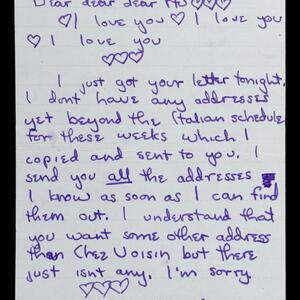 Dear dear dear Mu ♡♡♡♡
♡ I love you ♡ I love you
♡ I love you
♡♡♡
I just got your letter tonight.
I dont have any addresses
yet beyond the Italian schedule
for these weeks which I
copied and sent to you. I
send you all the addresses
I know as soon as I can find
them out. I understand that
you want some other address
than Chez Voisin but there
just isnt any. I'm sorry.
♡♡♡♡